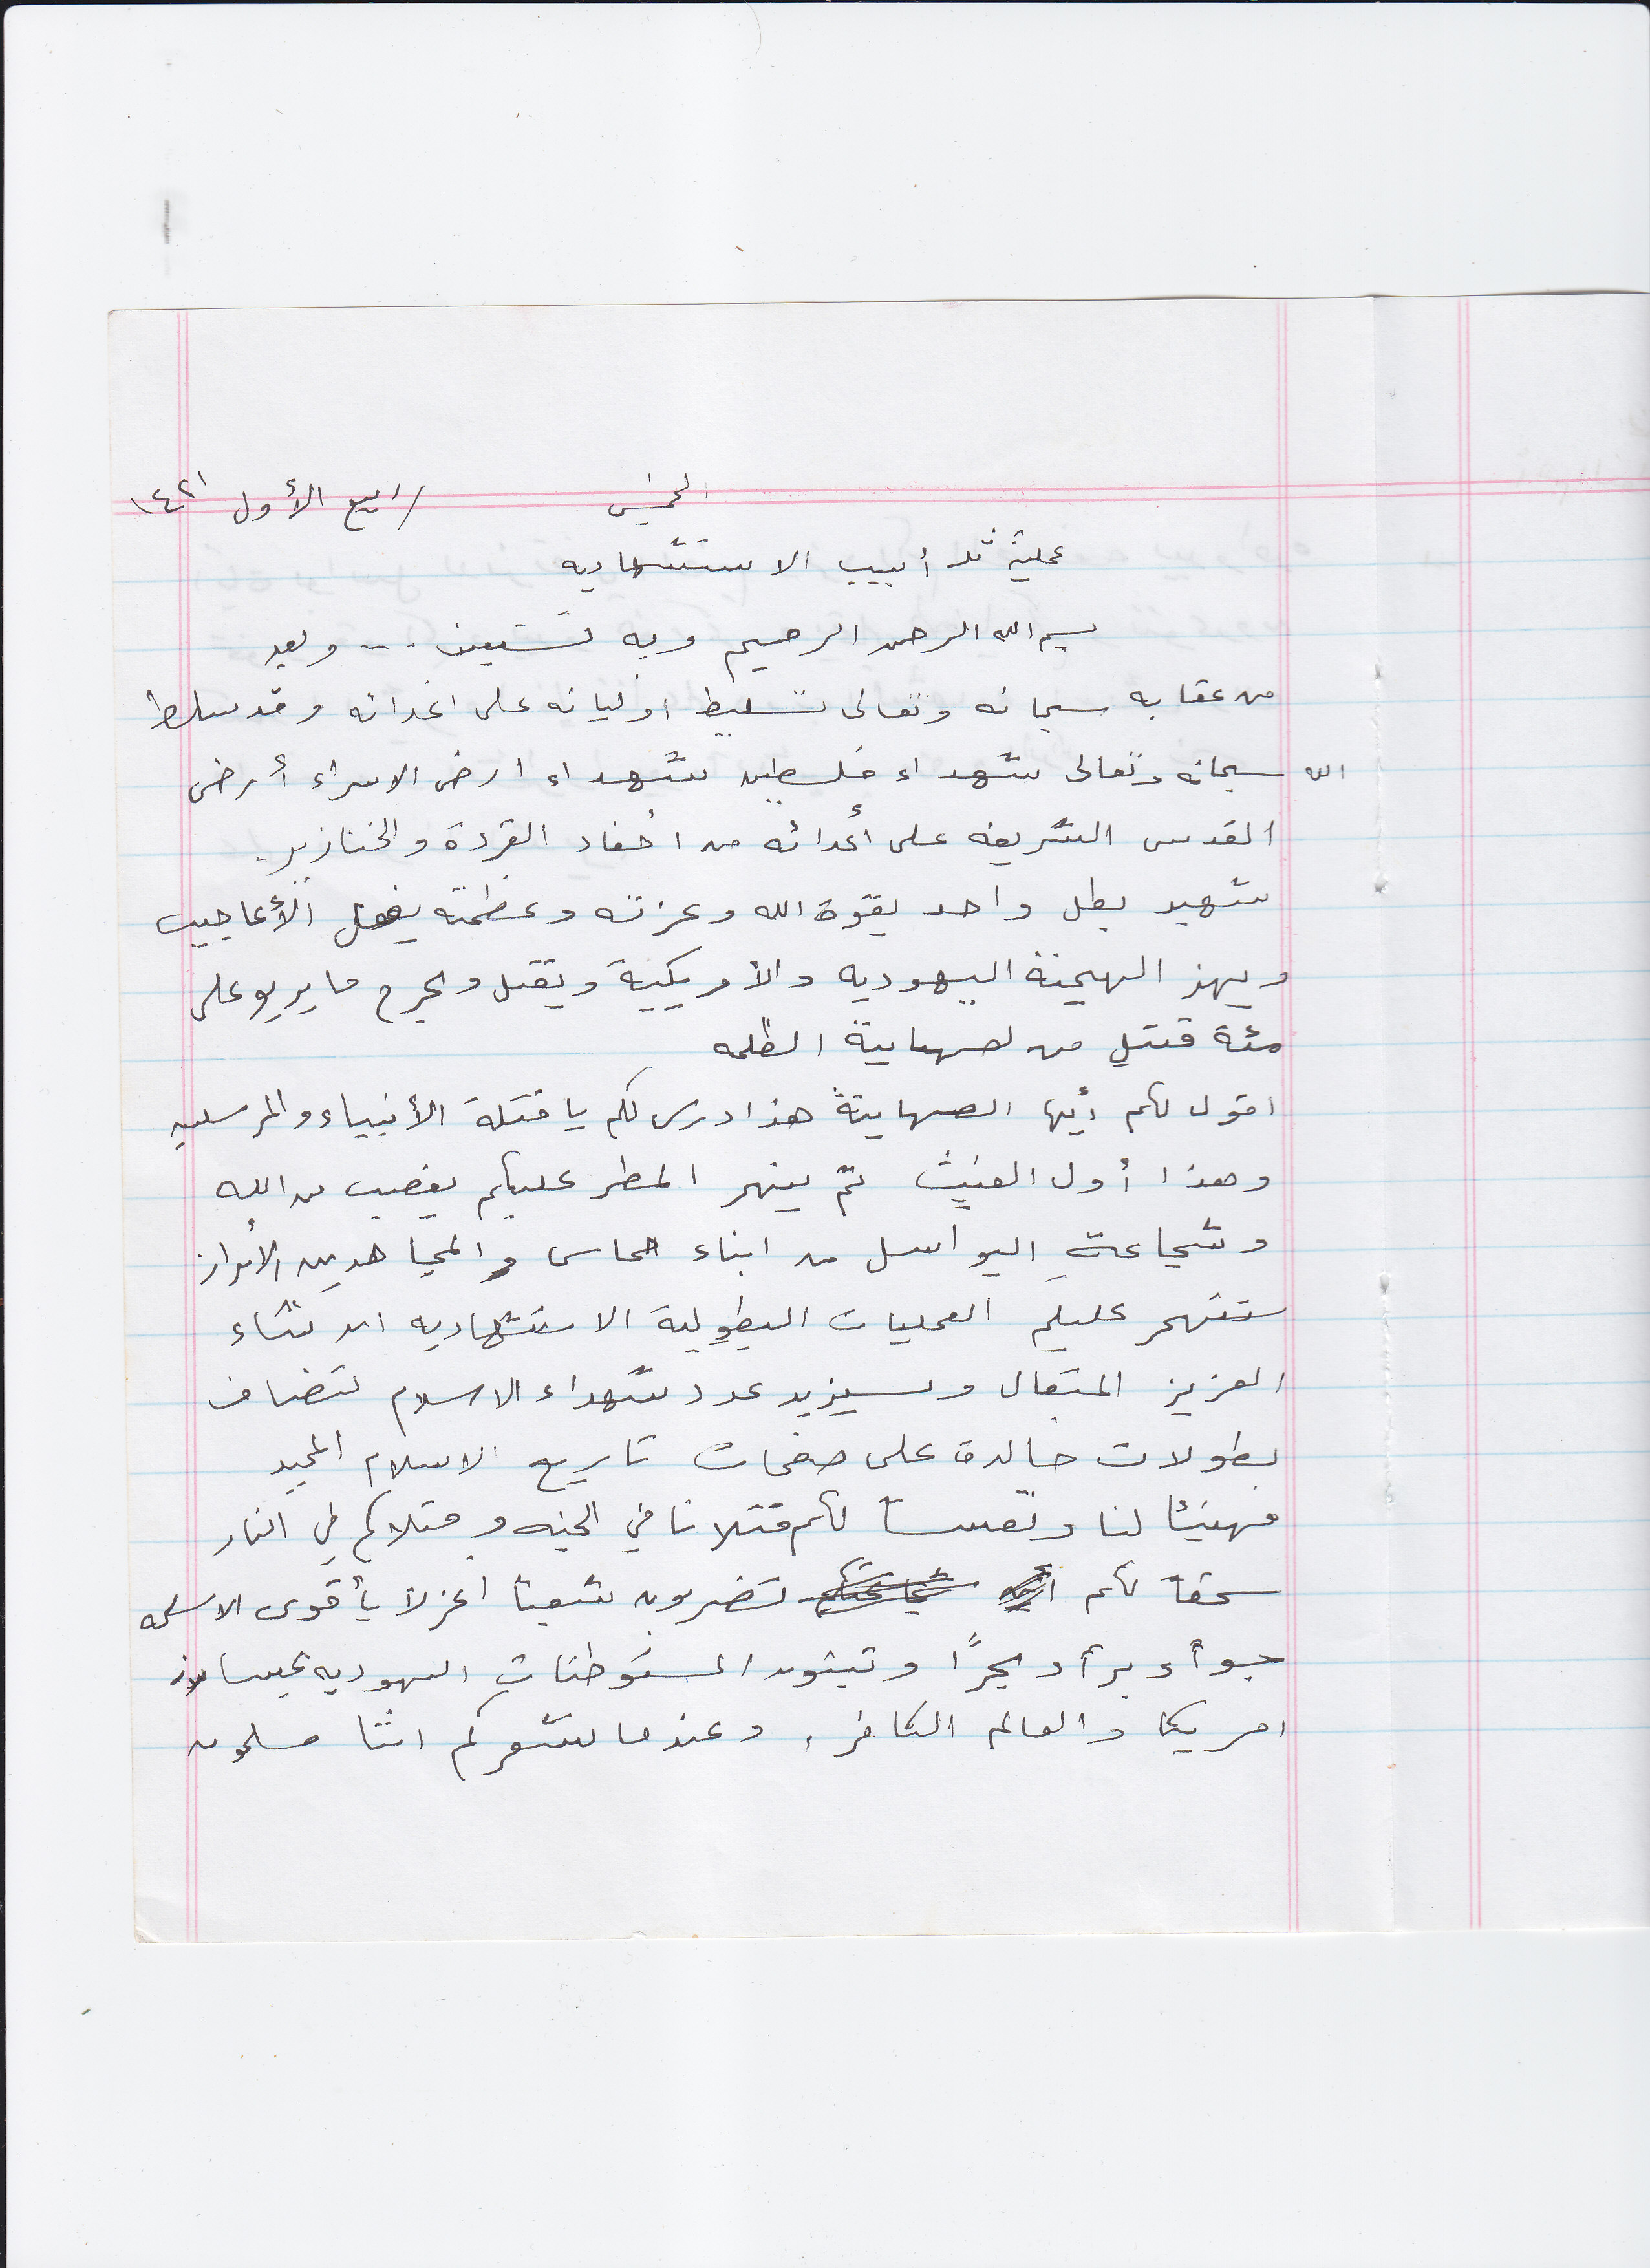 الخميس ربيع الأول ١٤٢١
عملية تل أبيب الاستشهاديه
بسم الله الرحمن الرحيم وبه نستعين ... وبعد
من عقابه سبحانه وتعالى تسليط اوليائه على اعدائه وقد سلط
الله سبحانه وتعالى شهداء فلسطين شهداء ارض الاسراء أرض
القدس الشريفه على أعدائه من أحفاد القردة والخنازير.
شهيد بطل واحد بقوة الله وعزته وعظمته يفعل الأعاجيب
ويهز الهيمنة اليهوديه والأمريكية ويقتل ويجرح ما يربو على
مئة قتيل من لصهاينة الظلمه
اقول لكم أيها الصهاينة هذا درس لكم يا قتلة الأنبياء والمرسلين
وهذا أول الغيث ثم ينهمر المطر عليكم بغضب من الله
وشجاعة البواسل من ابناء حماس والمجاهدين الأبرار
ستنهمر عليكم العمليات البطولية الاستشهاديه ان شاء
العزيز المتعال وسيزيد عدد شهداء الاسلام لتضاف
بطولات خالدة على صفحات تاريخ الاسلام المجيد
فهنيئا لنا وتعسا لكم قتلانا في الجنه وقتلاكم في النار
سحقا لكم تضربون شعبا أعزلا بأقوى الاسلحه
جوا وبرا وبحرا وتبنون المستوطنات اليهوديه بمساندة
امريكا والعالم الكافر، وعندما نشعركم اننا مسلمون